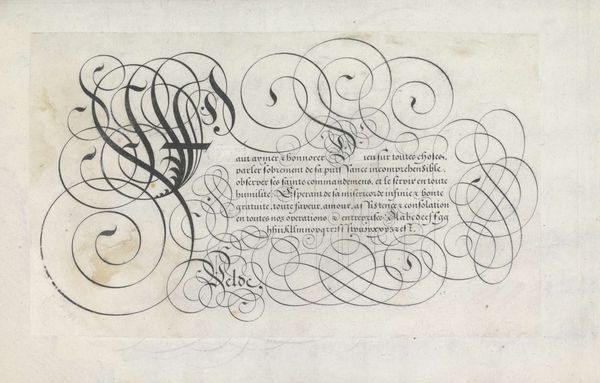 Faut aymer & honnorer Dieu sur toutes choses,
parler sobrement de sa puissance incomprehensible,
observer ses saints commandemens, et le servir en toute
humilité. Esperant de sa misericorde infinie & bonté
gratuite, toute faveur, amour, assistence & consolation
en toutes nos operations & entreprises. Aabcdeeffgg
Velde.